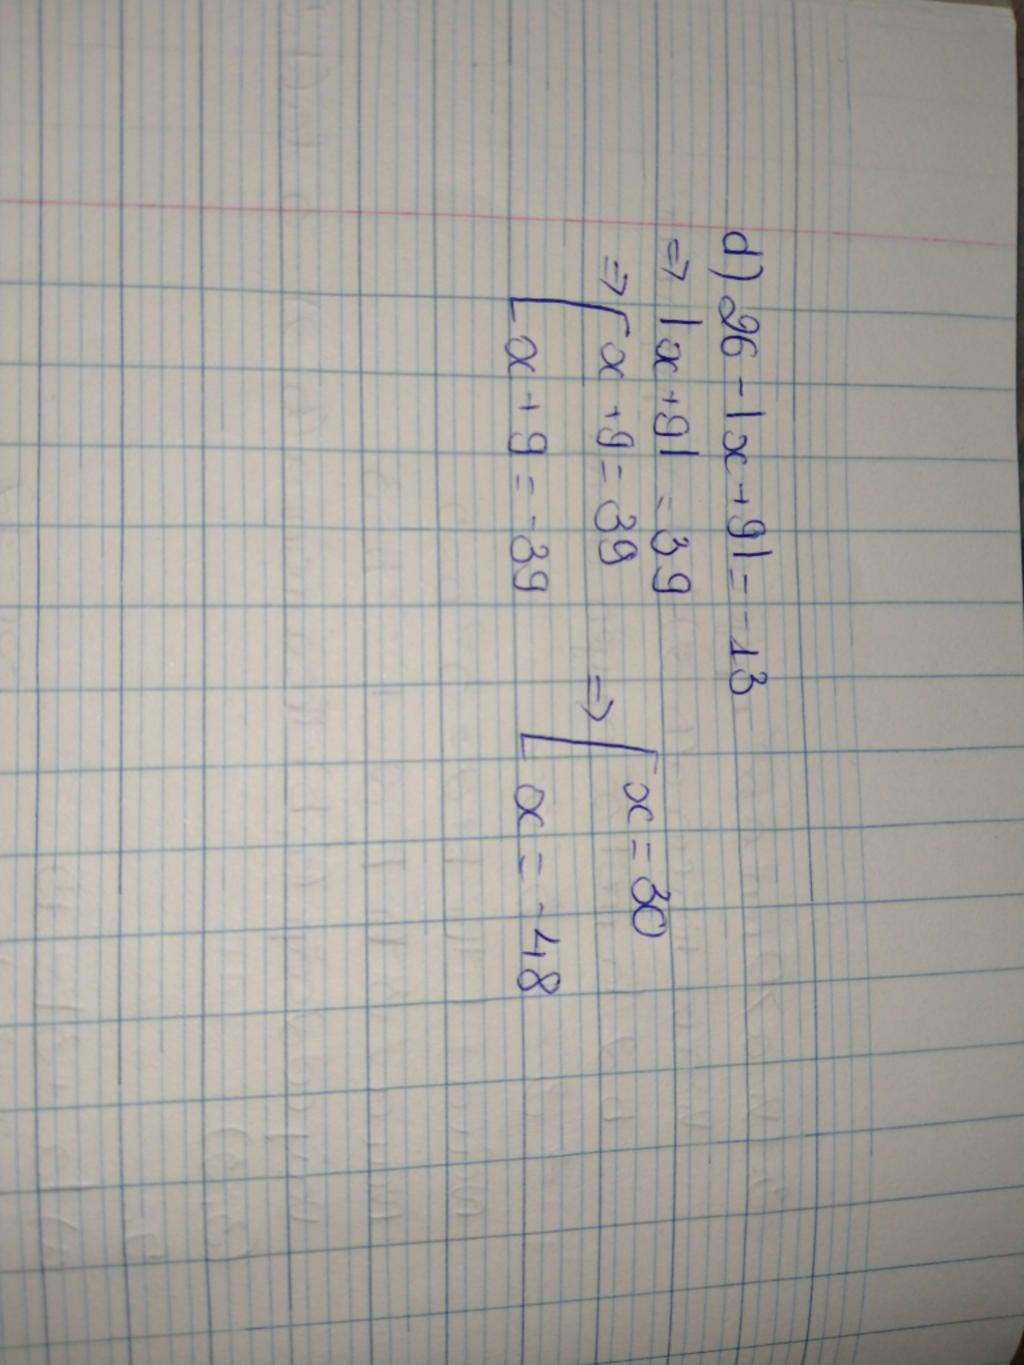 d) 26 - |x + 9| = -13
=> |x + 9| = 39
=> [ x + 9 = 39 => [ x = 30
[ x + 9 = -39 [ x = -48